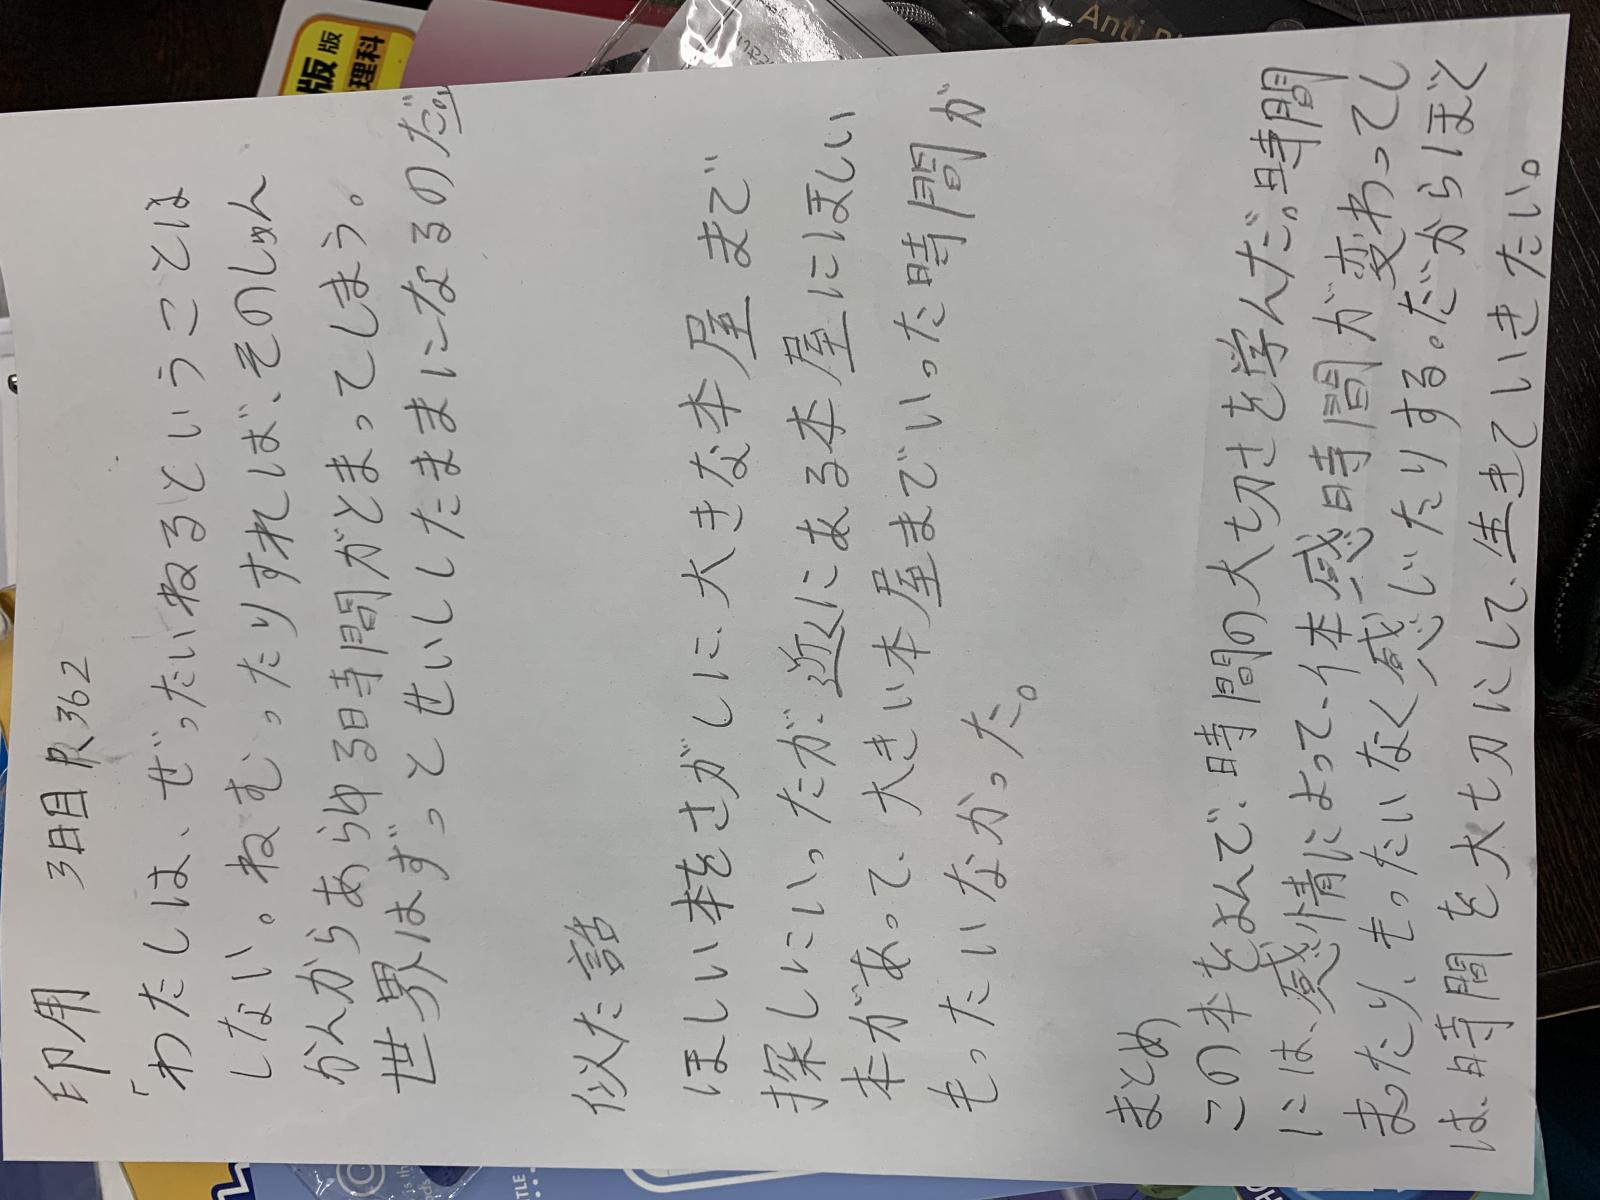 印用 3日目 P362
「わたしは、ぜったいねるということは
しない。ねむったりすれば、そのしゅん
かんからあらゆる時間がとまってしまう。
世界はずっとせいしたままになるのだ。
似た話
ほしい本をさがしに、大きな本屋まで
探しにいったが、近くにある本屋にほしい
本があって、大きい本屋までいった時間が
もったいなかった。
まとめ
この本をよんで、時間の大切さを学んだ。時間
には、感情によって、体感時間が変わってし
まったり、もったいなく感じたりする。だからほど
は、時間を大切にして、生きていきたい。
版 版
理科
Anti